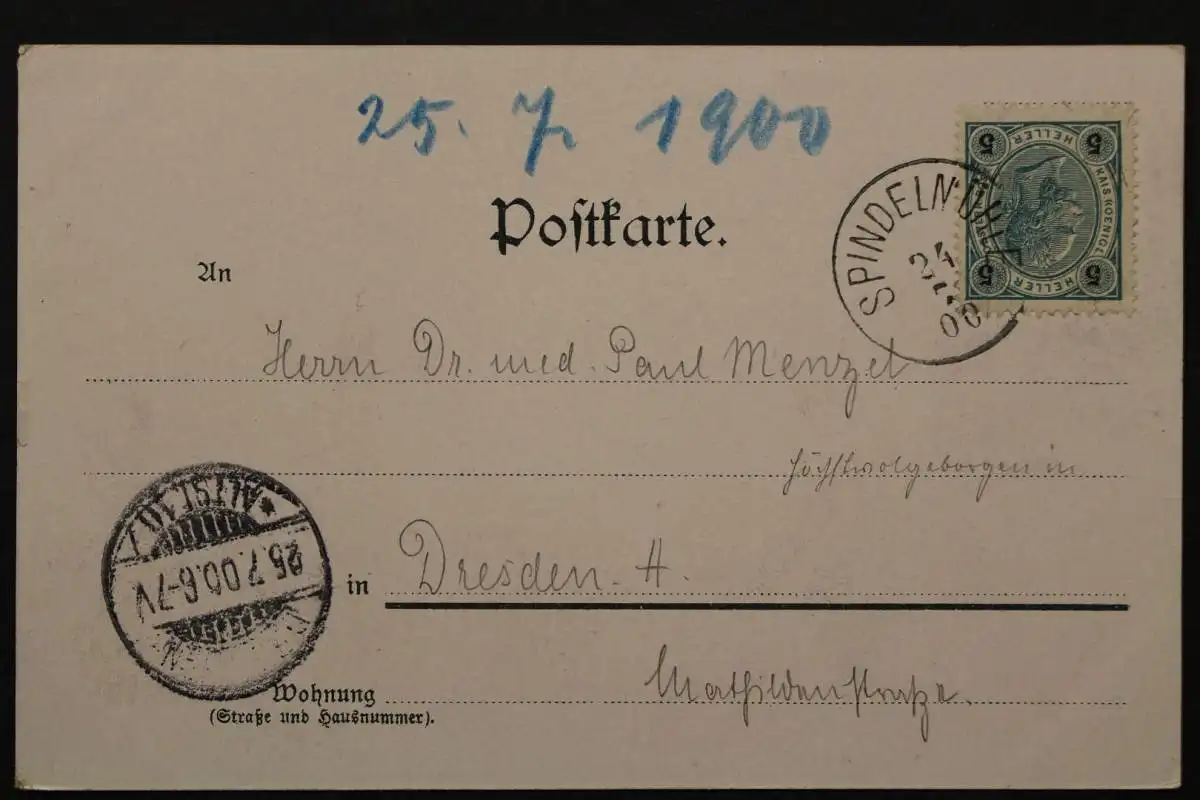 25. 7. 1900
Postkarte.
5 HELLER 5
KAIS. KOENIGL.
5 HELLER 5
SPINDELMÜHLE
24
00
An
Herrn Dr. med. Paul Menzel
Höchstwolgeborgen in
ALTST.
25.7.00.6-7V
in Dresden. A.
Mathildenstraße.
Wohnung
(Straße und Hausnummer).